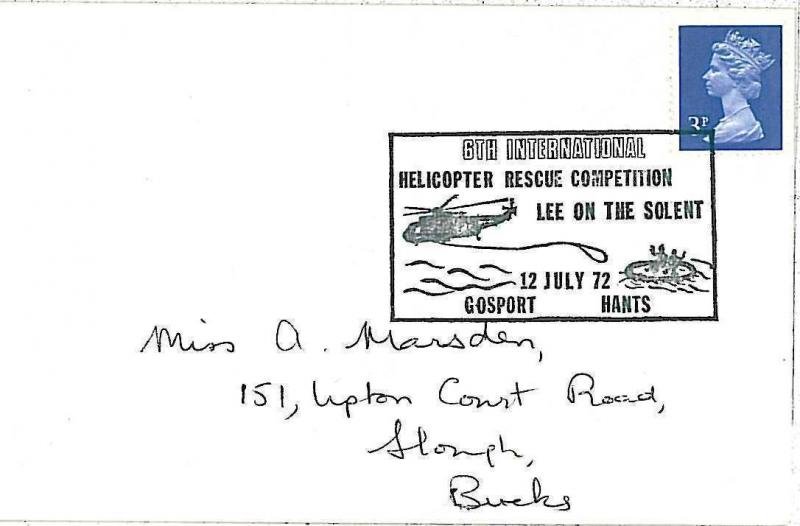 3P
6TH INTERNATIONAL
HELICOPTER RESCUE COMPETITION
LEE ON THE SOLENT
12 JULY 72
GOSPORT HANTS
Miss A. Marsden,
151, Upton Court Road,
Slough,
Bucks